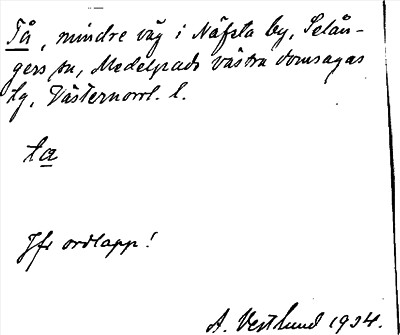 Tå, mindre väg i Näfsta by, Selån-
gers sn, Medelpads västra domsagas
tg, Västernorrl. l.
ta
Jfr ordlapp!
A. Vestlund 1924.